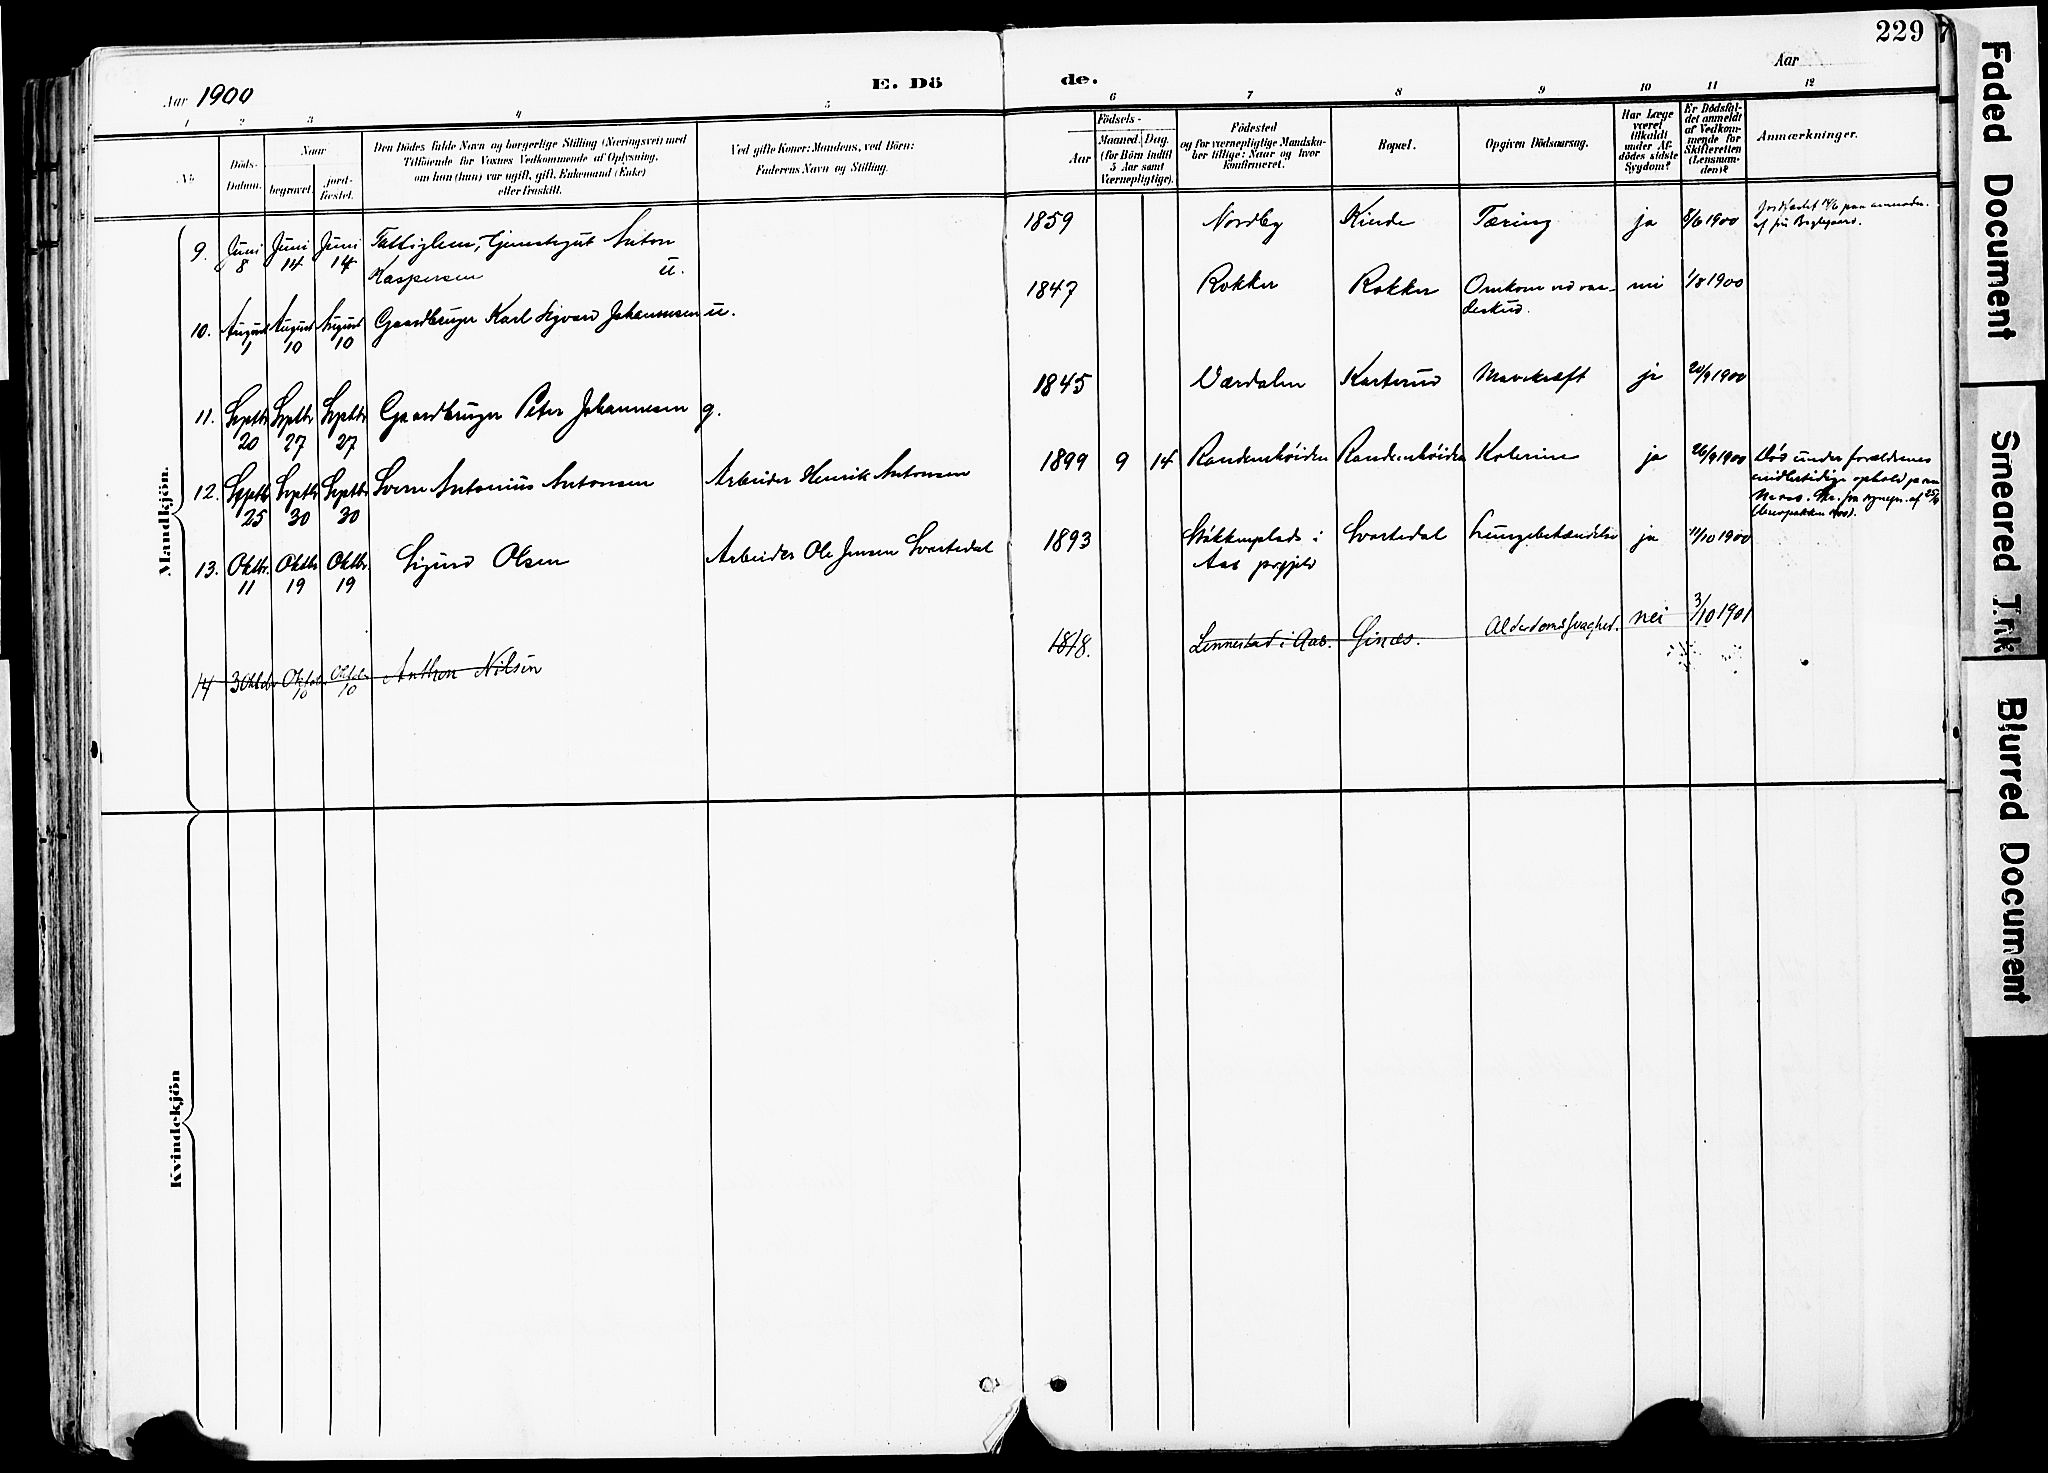 229
Aar 1900
E. Döde.
Aar
1 2 3 4 5 6 7 8 9 10 11 12
No.
Döds-
Datum.
Naar
begravet.
jord-
fæstet.
Den Dödes fulde Navn og borgerlige Stilling (Næringsvei) med
Tilföiende for Voxnes Vedkommende af Oplysning,
om han (hun) var ugift, gift, Enkemand (Enke)
eller fraskilt.
Ved gifte Koner: Mandens, ved Börn:
Faderens Navn og Stilling.
Födsels-
Aar
Maaned. Dag.
(for Börn indtil
5 Aar samt
Værnepligtige).
Födested
og for værnepligtige Mandska-
ber tillige: Naar og hvor
konfirmeret.
Bopæl.
Opgiven Dödsaarsag.
Har Læge
været
tilkaldt
under Af-
dödes sidste
Sygdom?
Er Dödsfal-
det anmeldt
af Vedkom-
mende for
Skifteretten
(Lensman-
den)?
Anmærkninger.
Mandkjön.
9. Juni 8 Juni 14 Juni 14 Fattiglem, Tjenestegut Anton
Kaspersen u.
1859 Nordby Kinde Tæring ja 8/6 1900
10. August 1 August 10 August 10 Gaardbruger Karl Sigvard Johannesen u.
1847 Rokker Rokker Omkom ved vaa-
deskud. nei 1/8 1900
11. Septbr 20 Septbr 27 Septbr 27 Gaardbruger Peter Johannesen g.
1845 Værdalen Karterud Mavekræft ja 20/9 1900
12. Septbr 25 Septbr 30 Septbr 30 Sverre Antonius Antonsen Arbeider Henrik Antonsen
1899 9 14 Randemshöiden Randemshöiden Kolerine ja 26/9 1900 Död under forældrenes
midlertidige ophold paa
13. Oktbr. 11 Oktbr 19 Oktbr. 19 Sigurd Olsen Arbeider Ole Jensen Svartedal
1893 Stökkenplads i
Aas prgjeld Svartedal Lungebetændelse ja 11/10 1900
14 3 Oktobr Oktobr 10 Oktobr 10 Anthon Nilsen
1818. Lennestad i Aas. Ginæs. Alderdomssvaghed. nei 3/10 1901
Kvindekjön
Faded Document
Smeared Ink
Blurred Document